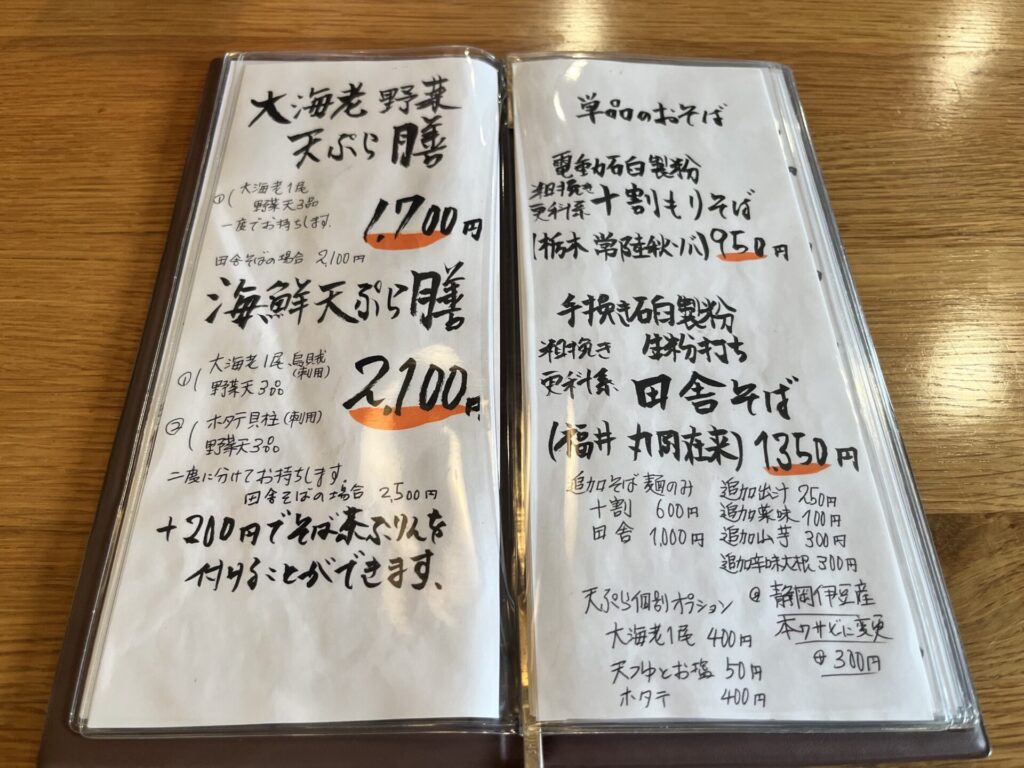 大海老 野菜
天ぷら膳
① 大海老1尾
野菜天3品
一度でお持ちします.
1,700円
田舎そばの場合 2,100円
海鮮天ぷら膳
① 大海老1尾 烏賊(刺用)
野菜天3品
2,100円
② ホタテ貝柱(刺用)
野菜天3品
二度に分けてお持ちします。
田舎そばの場合 2,500円
+200円でそば茶ぷりんを
付けることができます.
単品のおそば
電動石臼製粉
粗挽き
更科系 十割もりそば
(栃木 常陸秋ソバ) 950円
手挽き石臼製粉
粗挽き 生粉打ち
更科系 田舎そば
(福井 丸岡在来) 1,350円
追加そば 麺のみ
十割 600円
田舎 1,000円
追加出汁 250円
追加薬味 100円
追加山芋 300円
追加辛味大根 300円
天ぷら個別オプション
大海老1尾 400円
天つゆとお塩 50円
ホタテ 400円
静岡伊豆産
本ワサビに変更
300円